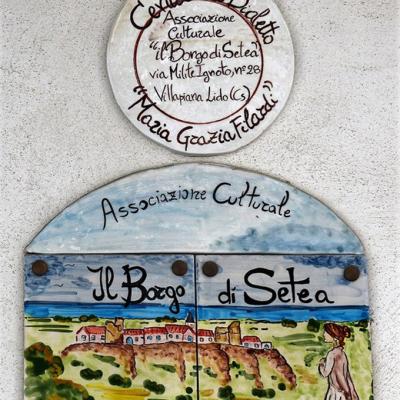 Associazione
Culturale
"il Borgo di Setea"
via Milite Ignoto, n° 28
Villapiana Lido (Cs)
"Maria Grazia Filardi"
Associazione Culturale
Il Borgo di Setea